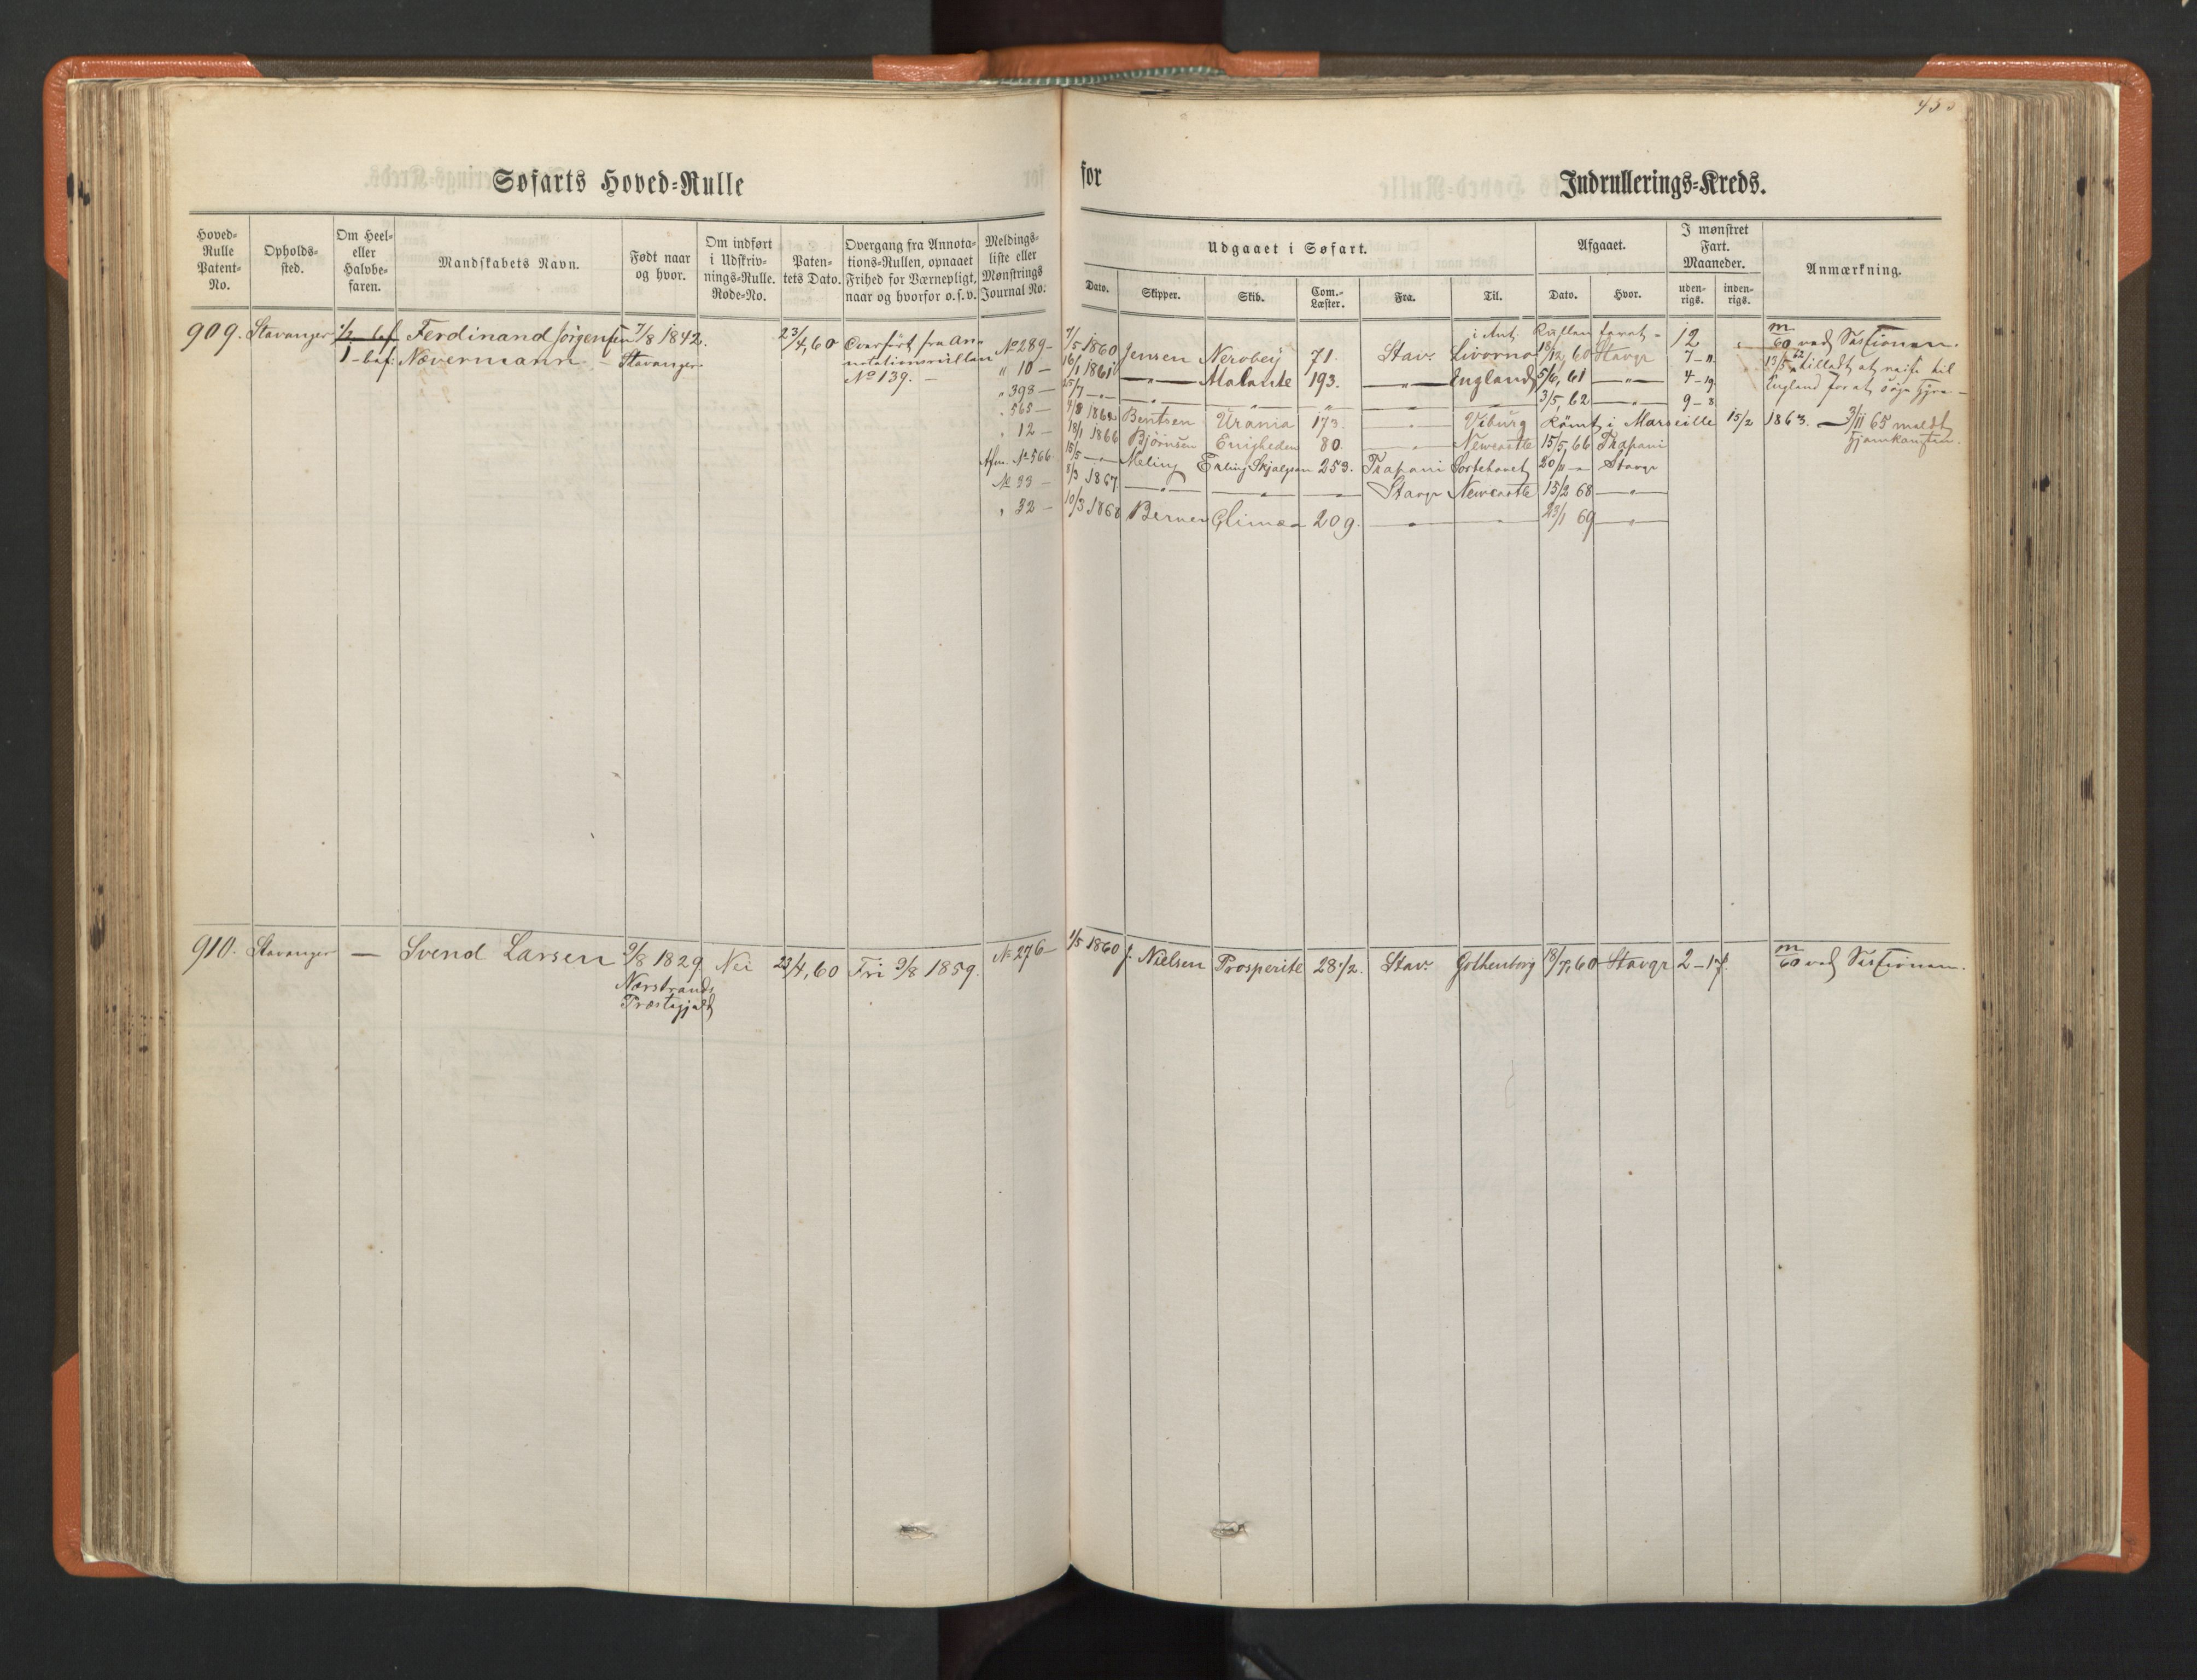 Søfarts Hoved-Rulle
for
Indrullerings-Kreds.
Hoved-Rulle Patent-No.
Opholds-sted.
Om Heel- eller Halvbe-faren.
Mandskabets Navn.
Født naar og hvor.
Om indført i Udskriv-nings-Rulle. Rode-No.
Paten-tets Dato.
Overgang fra Annota-tions-Rullen, opnaaet Frihed for Værnepligt, naar og hvorfor o.s.v.
Meldings-liste eller Mønstrings Journal No.
Udgaaet i Søfart.
Dato.
Skipper.
Skib.
Com.-Læster.
Fra.
Til.
Afgaaet.
Dato.
Hvor.
I mønstret Fart. Maaneder.
uden-rigs.
inden-rigs.
Anmærkning.
909. Stavanger 1/2 bef. Ferdinand Jørgensen 7/8 1842. 23/4, 60 Overført fra An-
1 - bef: Nævermann - Stavanger notationsrullen
No 139. -
i Ant. Rullen farat - 12 m/60 ved Sessionen.
No 289 - 7/5 1860 Jensen Nerobey 71. Stav. Livorno 18/12, 60 Stavgr 7 - 11 13/5 62 tilladt at reise til
" 10 - 16/1 1861 - " - Atalante 193. - " - England 5/6, 61 - " - 4 - 19 England for at søge Hyre -
" 398 - 25/7 - " - - " - - " - 3/5, 62 - " - 9 - 8
" 565 - Bentsen Urania 173. - " - Viburg Rømt i Marseille 15/2 1863. - 3/11 65 meldt hjemkommen.
" 12 - 18/1 1866 Bjørnsen Enigheden 80. - " - Newcastle 15/5, 66 Trapani
Afm. No 566 15/5 - " - Meling Erling Skjalgson 253. Trapani Sortehavet Stavgr
No 33 - 8/3 1867. - " - - " - Stavgr Newcastle 15/2 68 - " -
" 32 - 10/3 1868 Berner Glimæ 209. - " - 23/1 69 - " -
910. Stavanger - Svend Larsen 9/8 1829 Nei 23/4, 60 Fri 9/8 1859. No 276 - 1/5 1860 J. Nielsen Prosperite 28 1/2. Stav. Gothenborg 18/7, 60 Stavgr 2 - 17. m/60 ved Sessionen.
Nærstrands
Præstegjeld